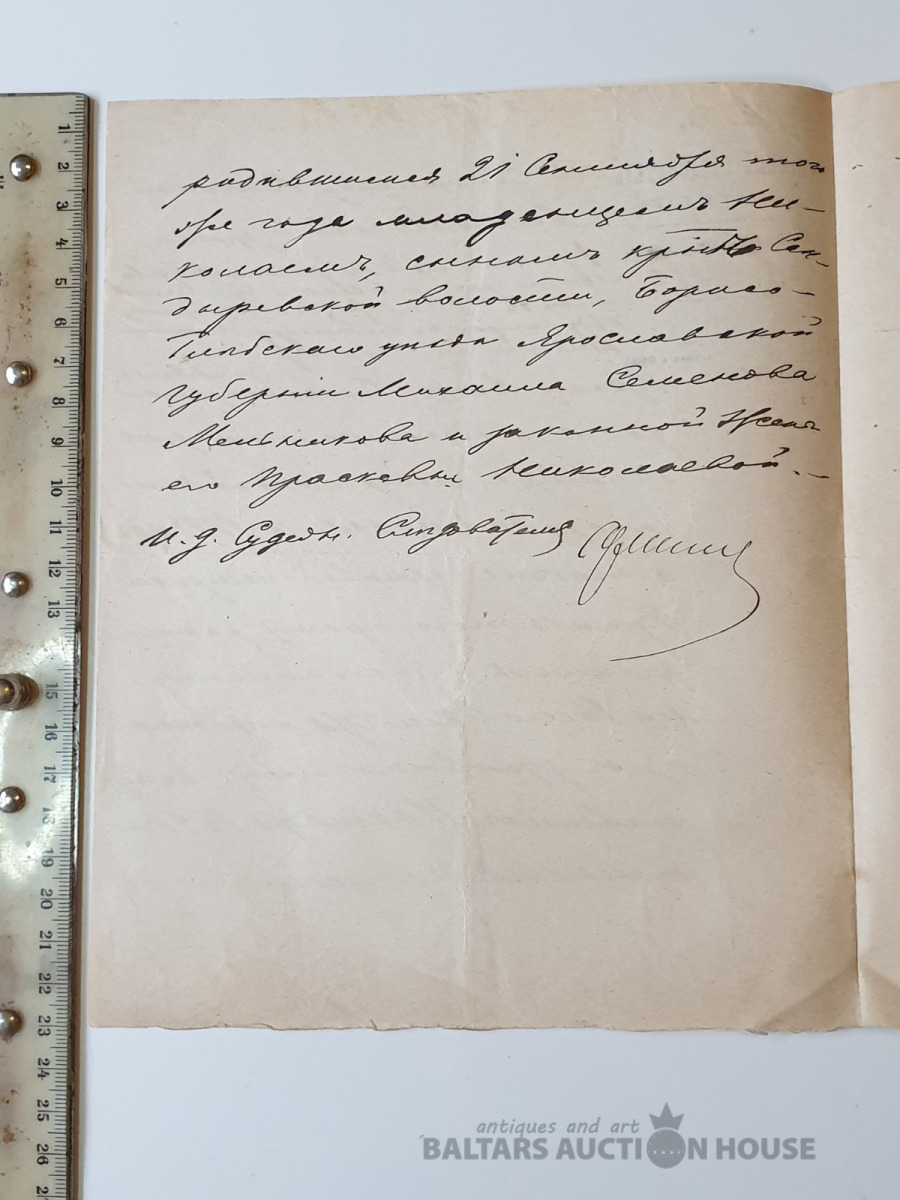 родившимся 21 Сентября того
же года младенцем Ни-
колаемъ, сыномъ крѣст. Сан-
дыревской волости, Борисо-
Глѣбскаго уѣзда Ярославской
губерніи Михаила Семенова
Мельникова и законной жены
его Прасковьи Николаевой.
И. д. Судебн. Слѣдователя
antiques and art
BALTARS AUCTION HOUSE
1
2
3
4
5
6
7
8
9
10
11
12
13
15
16
17
18
19
20
21
22
23
24
25
26